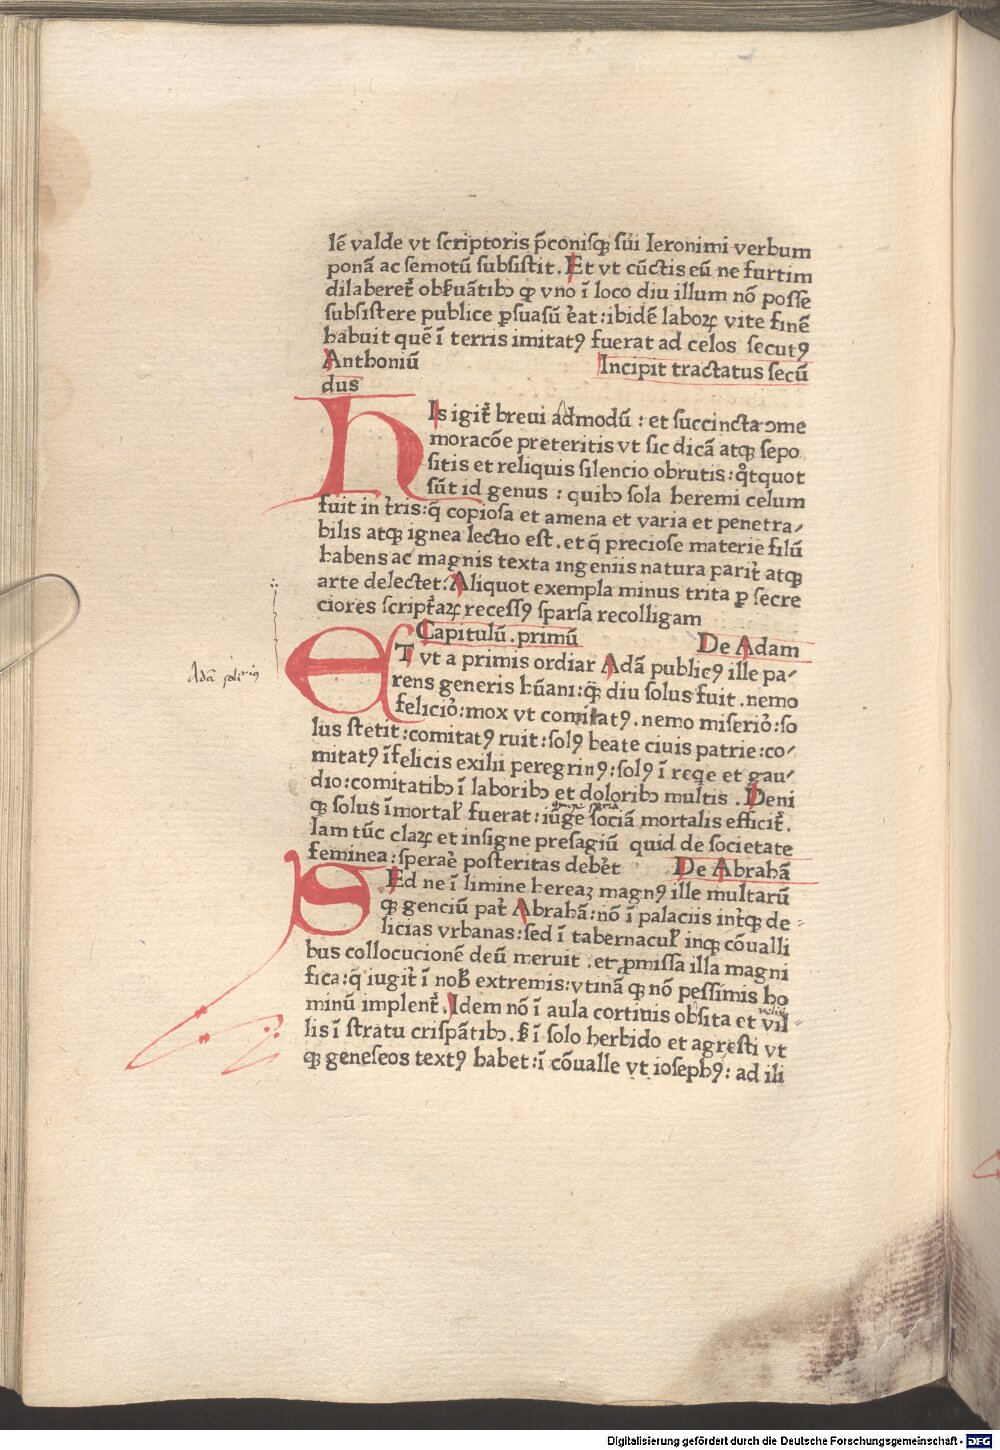 lē valde vt scriptoris p̄conisqꝫ sūi Ieronimi verbum
ponā ac semotū subsistit. Et vt cūctis eū ne furtim
dilaberet᷑ obꝭuātibꝰ qꝫ vno ī loco diu illum nō posse
subsistere publice ꝑsuasū ēat: ibidē laboꝝ vite finē
habuit quē ī terris imitatꝰ fuerat ad celos secutꝰ
Anthoniū Incipit tractatus secū
dus
HIs igit᷑ breui admodū : et succincta ꝯme
moracōe preteritis vt sic dicā atqꝫ sepo
sitis et reliquis silencio obrutis: q̊tquot
sūt id genus : quibꝰ sola heremi celum
fuit in t᷑ris: q̄ copiosa et amena et varia et penetra/
bilis atqꝫ ignea lectio est. et q̄ preciose materie filū
habens ac magnis texta ingeniis natura parit᷑ atqꝫ
arte delectet: Aliquot exempla minus trita ꝑ secre
ciores script᷑aꝝ recessꝰ sparsa recolligam
Capitulū. primū De Adam
ET vt a primis ordiar Adā publicꝰ ille pa/
rens generis hūani: qꝫ̄ diu solus fuit. nemo
felicio᷑: mox vt comitatꝰ. nemo miserio᷑: so
lus stetit: comitatꝰ ruit: solꝰ beate ciuis patrie: co/
mitatꝰ īfelicis exilii peregrinꝰ: solꝰ ī reqe et gau/
dio: comitatibꝰ ī laboribꝰ et doloribꝰ multis. Deni
qꝫ solus īmortaƚ fuerat: iūge sociā mortalis efficit᷑.
Iam tūc claꝝ et insigne presagiū quid de societate
feminea: speraē posteritas debēt De Abrahā
SEd ne ī limine hereaꝫ magnꝰ ille multarū
qꝫ genciū pat᷑ Abrahā: nō ī palaciis int᷑qꝫ de-
licias vrbanas: sed ī tabernacuƚ inqꝫ cōualli
bus collocucionē deū meruit. et ꝓmissa illa magni
fica: q̄ iugit᷑ ī noƀ extremis: vtinā qꝫ nō pessimis ho
minū implent᷑. Idem nō ī aula cortinis obsita et vil-
lis ī stratu crispātibꝰ. ꝭ ī solo herbido et agresti vt
qꝫ geneseos textꝰ habet: ī cōualle vt iosephꝰ: ad ili
Digitalisierung gefördert durch die Deutsche Forschungsgemeinschaft - DFG